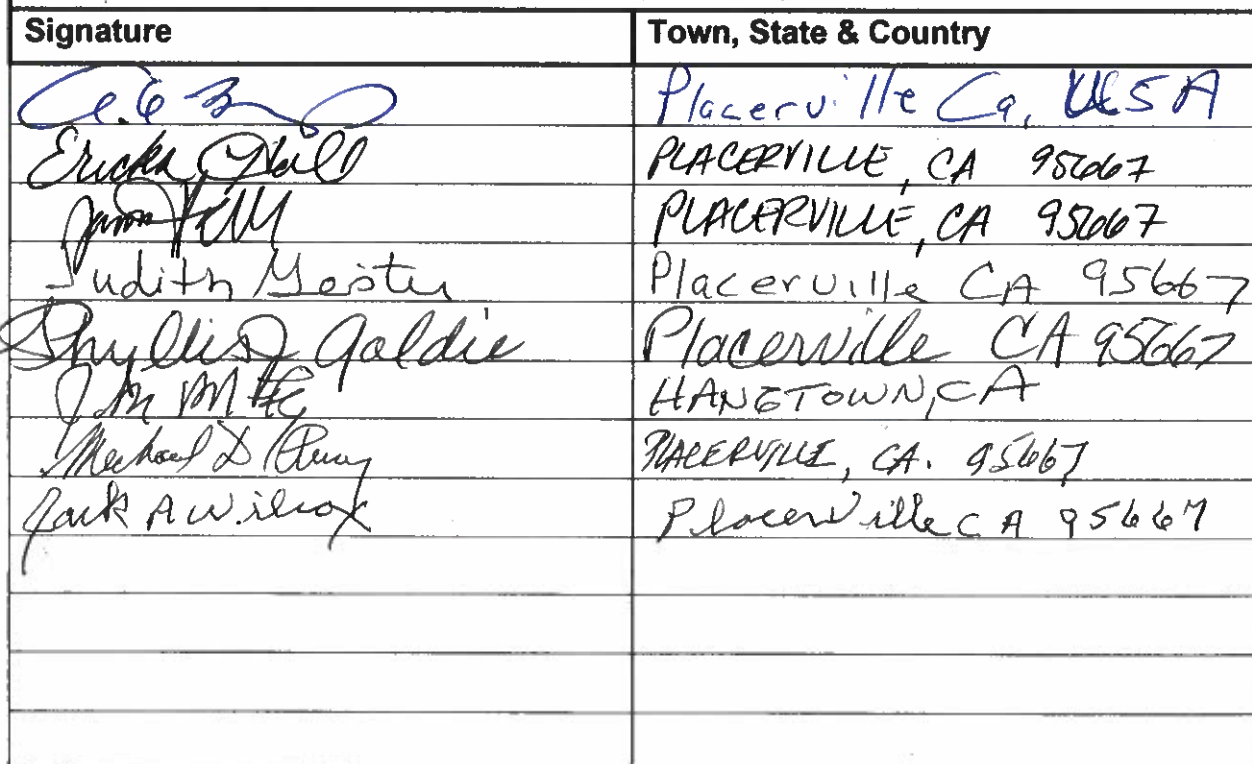 Signature Town, State & Country
Placerville Ca, USA
Ericka PLACERVILLE, CA 95667
PLACERVILLE, CA 95667
Judith Placerville CA 95667
Phyllis J Goldie Placerville CA 95667
HANGTOWN, CA
Michael D PLACERVILLE, CA. 95667
Jack A Wilcox Placerville CA 95667